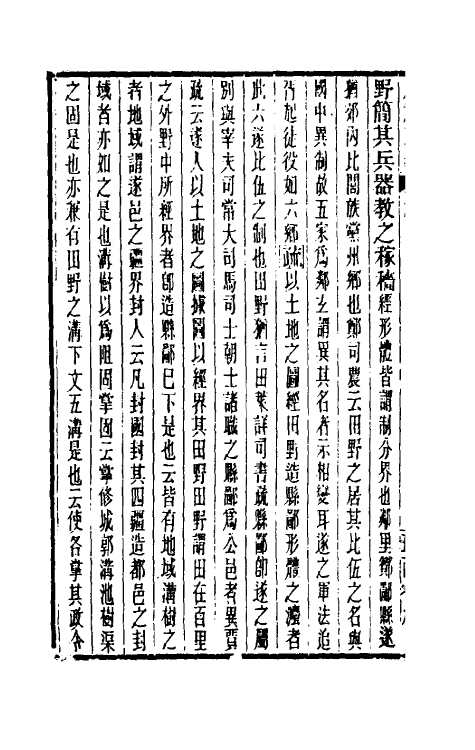 野簡其兵器教之稼穡經形體皆謂制分界也鄰里酇鄙縣遂
猶郊內比閭族黨州鄉也鄭司農云田野之居其比伍之名與
國中異制故五家爲鄰玄謂異其名者示相變耳遂之軍法追
胥起徒役如六鄉疏以土地之圖經田野造縣鄙形體之灋者
此六遂比伍之制也田野猶言田萊詳司書疏縣鄙卽遂之屬
別與宰夫司常大司馬司士朝士諸職之縣鄙爲公邑者異賈
疏云遂人以土地之圖據圖以經界其田野田野謂田在百里
之外野中所經界者卽造縣鄙巳下是也云皆有地域溝樹之
者地域謂遂邑之疆界封人云凡封國封其四疆造都邑之封
域者亦如之是也溝樹以爲阻固掌固云掌修城郭溝池樹渠
之固是也亦兼有田野之溝下文五溝是也云使各掌其政令